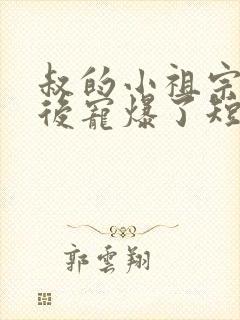 叔的小祖宗
後寵爆了短
郭雲翔